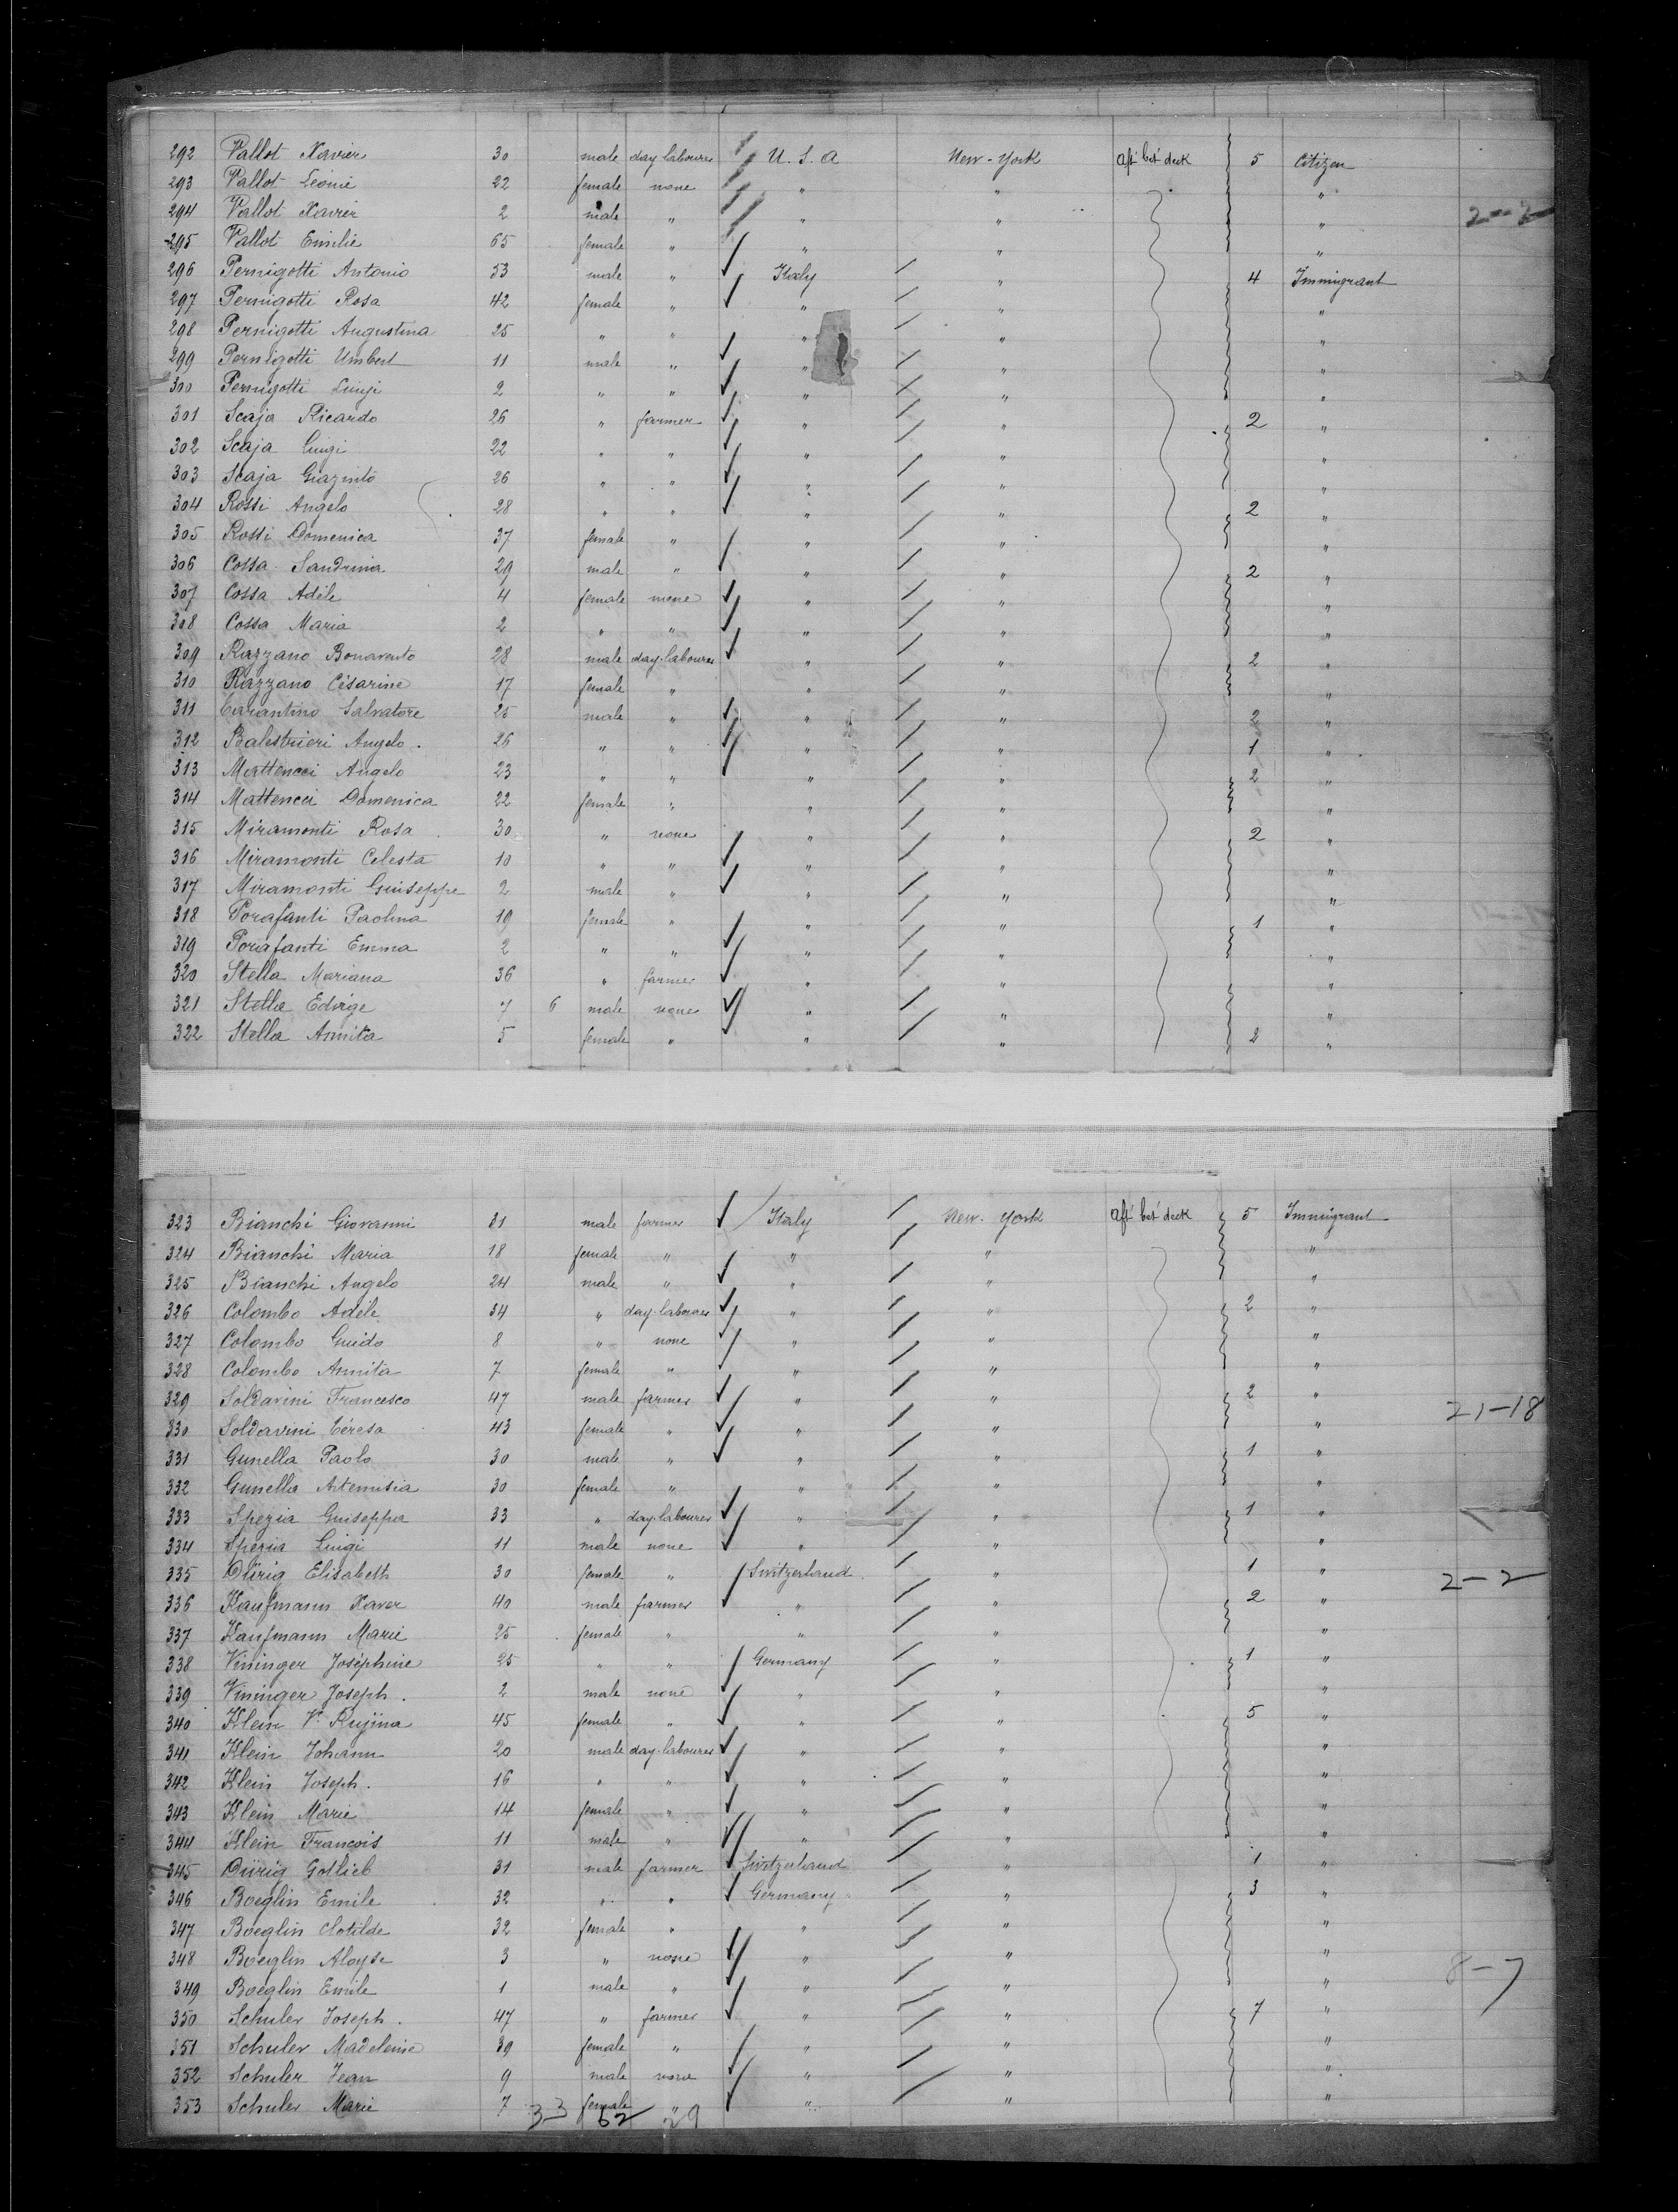 292 Vallot Xavier 30 male day labourer U. S. A New-York aft bet deck 5 Citizen
293 Vallot Léonie 22 female none " " "
294 Vallot Xavier 2 male " " " " 2-2
295 Vallot Emilie 65 female " " " "
296 Pernigotti Antonio 53 male " Italy " 4 Immigrant
297 Pernigotti Rosa 42 female " " " "
298 Pernigotti Augustina 25 " " " " "
299 Pernigotti Umbert 11 male " " " "
300 Pernigotti Luigi 2 " " " " "
301 Scaja Ricardo 26 " farmer " " 2 "
302 Scaja Luigi 22 " " " " "
303 Scaja Giazinto 26 " " " " "
304 Rossi Angelo 28 " " " " 2 "
305 Rossi Domenica 37 female " " " "
306 Cossa Sandrina 29 male " " " 2 "
307 Cossa Adèle 4 female none " " "
308 Cossa Maria 2 " " " " "
309 Razzano Bonavento 28 male day-labourer " " 2 "
310 Razzano Césarine 17 female " " " "
311 Carantino Salvatore 25 male " " " 2 "
312 Balestrieri Angelo. 26 " " " " 1 "
313 Mattencci Angelo 23 " " " " 2 "
314 Mattencci Domenica 22 female " " " "
315 Miramonti Rosa 30 " none " " 2 "
316 Miramonti Celesta 10 " " " " "
317 Miramonti Guiseppe 2 male " " " "
318 Porafanti Paolina 19 female " " " 1 "
319 Porafanti Emma 2 " " " " "
320 Stella Mariana 36 " farmer " " "
321 Stella Edvige 7 6 male none " " "
322 Stella Annita 5 female " " " 2 "
323 Bianchi Giovanni 31 male farmer Italy New-York aft bet deck 5 Immigrant
324 Bianchi Maria 18 female " " " "
325 Bianchi Angelo 24 male " " " "
326 Colombo Adèle 34 " day-labourer " " 2 "
327 Colombo Guido 8 " none " " "
328 Colombo Annita 7 female " " " "
329 Soldavini Francesco 47 male farmer " " 2 " 21-18
330 Soldavini Téresa 43 female " " " "
331 Gunella Paolo 30 male " " " 1 "
332 Gunella Artemisia 30 female " " " "
333 Spezia Guiseppa 33 " day-labourer " " 1 "
334 Spezia Luigi 11 male none " " "
335 Dürig Elisabeth 30 female " Switzerland " 1 " 2-2
336 Kaufmann Xaver 40 male farmer " " 2 "
337 Kaufmann Marie 25 female " " " "
338 Vininger Joséphine 25 " " Germany " 1 "
339 Vininger Joseph. 2 male none " " "
340 Klein Ve Rujina 45 female " " " 5 "
341 Klein Johann 20 male day-labourer " " "
342 Klein Joseph. 16 " " " " "
343 Klein Marie 14 female " " " "
344 Klein François 11 male " " " "
345 Dürig Gottlieb 31 male farmer Switzerland " 1 "
346 Boeglin Emile 32 " " Germany " 3 "
347 Boeglin Clotilde 32 female " " " "
348 Boeglin Aloyse 3 " none " " " 8-7
349 Boeglin Emile 1 male " " " "
350 Schuler Joseph. 47 " farmer " " 7 "
351 Schuler Madeleine 39 female " " " "
352 Schuler Jean 9 male none " " "
353 Schuler Marie 7 female " " " "
33 62 29